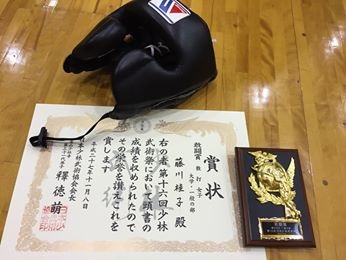 賞状
敢闘賞 散打 女子
大学・一般の部
藤川桂子殿
右の者第十六回少林
武術祭において頭書の
成績を収められたので
その栄誉を讃えこれを
賞します
平成二十七年十一月八日
日本少林武術協会会長
釋徳萌
敢闘賞